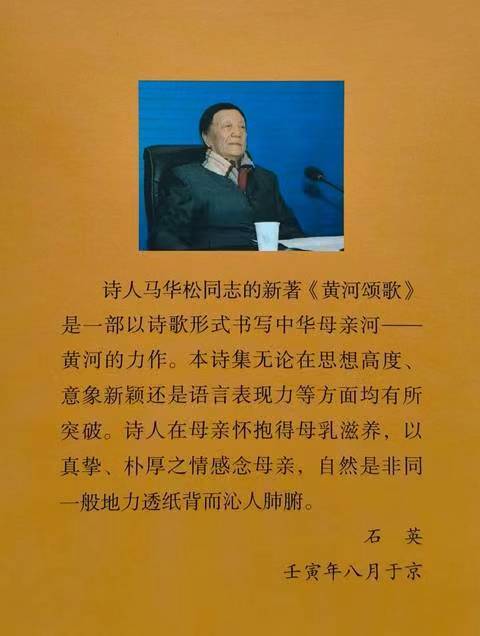 诗人马华松同志的新著《黄河颂歌》
是一部以诗歌形式书写中华母亲河——
黄河的力作。本诗集无论在思想高度、
意象新颖还是语言表现力等方面均有所
突破。诗人在母亲怀抱得母乳滋养，以
真挚、朴厚之情感念母亲，自然是非同
一般地力透纸背而沁人肺腑。
石 英
壬寅年八月于京